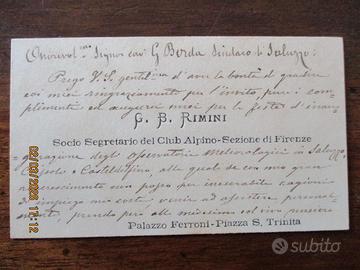 Onorevol.mo Signor cav G Borda Sindaco di Saluzzo:
Prego V. S. gentil.ma d'aver la bontà di gradire
coi miei ringraziamenti per l'invito, pure i com-
plimenti ed augurii miei per la festa d'inau-
G. B. RIMINI
Socio Segretario del Club Alpino-Sezione di Firenze
gurazione degli Osservatori Meteorologici in Saluzzo,
e Casteldelfino alle quali io con mio gran
rincrescimento non posso per inesorabile ragioni
d'impiego mio venir ad assistere personal-
mente, prendo però alle medesime
Palazzo Ferroni-Piazza S. Trinita
02/03/2026 11:12
subito